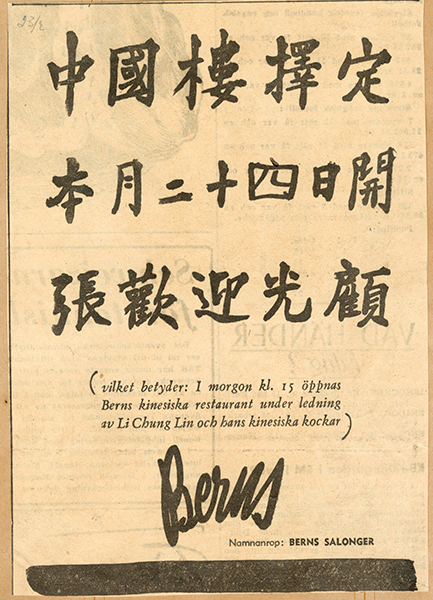 23/2
中國樓擇定
本月二十四日開
張歡迎光顧
(vilket betyder: I morgon kl. 15 öppnas
Berns kinesiska restaurant under ledning
av Li Chung Lin och hans kinesiska kockar)
Berns
Namnanrop: BERNS SALONGER
VAD HÄNDER